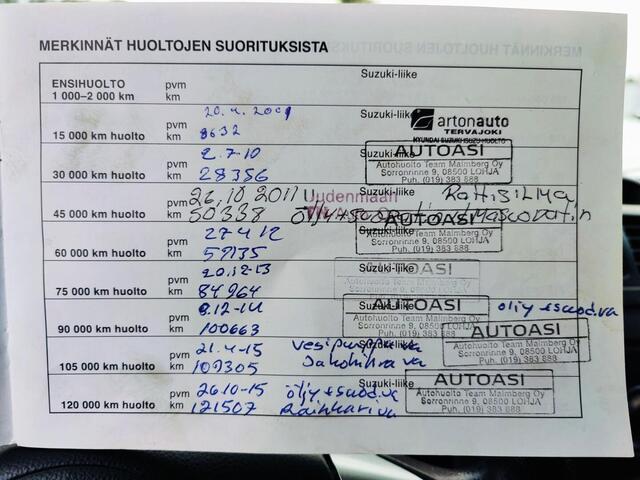 MERKINNÄT HUOLTOJEN SUORITUKSISTA
ENSIHUOLTO pvm Suzuki-liike
1 000–2 000 km km
20.4.2009 Suzuki-liike artonauto
15 000 km huolto pvm TERVAJOKI
km 8632 HYUNDAI SUZUKI ISUZU-HUOLTO
pvm 2.7-10 Suzuki-liike AUTOASI
30 000 km huolto km 28356 Autohuolto Team Malmberg Oy
Sorronrinne 9, 08500 LOHJA
Puh. (019) 383 888
pvm 26,10 2011 Uudenmaan Suzuki-liike
45 000 km huolto km 50338
pvm 27 4 12 AUTOASI
60 000 km huolto km 59135 Autohuolto Team Malmberg Oy
Sorronrinne 9, 08500 LOHJA
Puh. (019) 383 888
pvm 20.12-13 Suzuki-liike AUTOASI
75 000 km huolto km 84964 Autohuolto Team Malmberg Oy
Sorronrinne 9, 08500 LOHJA
Puh. (019) 383 888
pvm 8.12-14 Suzuki-liike AUTOASI öljy + suod.va
90 000 km huolto km 100663 Autohuolto Team Malmberg Oy
Sorronrinne 9, 08500 LOHJA
pvm 21.4-15 vesipumppu va Suzuki-liike AUTOASI
105 000 km huolto km 109305 Jakohihna va Autohuolto Team Malmberg Oy
Sorronrinne 9, 08500 LOHJA
Puh. (019) 383 888
pvm 26.10-15 öljy + suod.va Suzuki-liike AUTOASI
120 000 km huolto km 121507 va Autohuolto Team Malmberg Oy
Sorronrinne 9, 08500 LOHJA
Puh. (019) 383 888